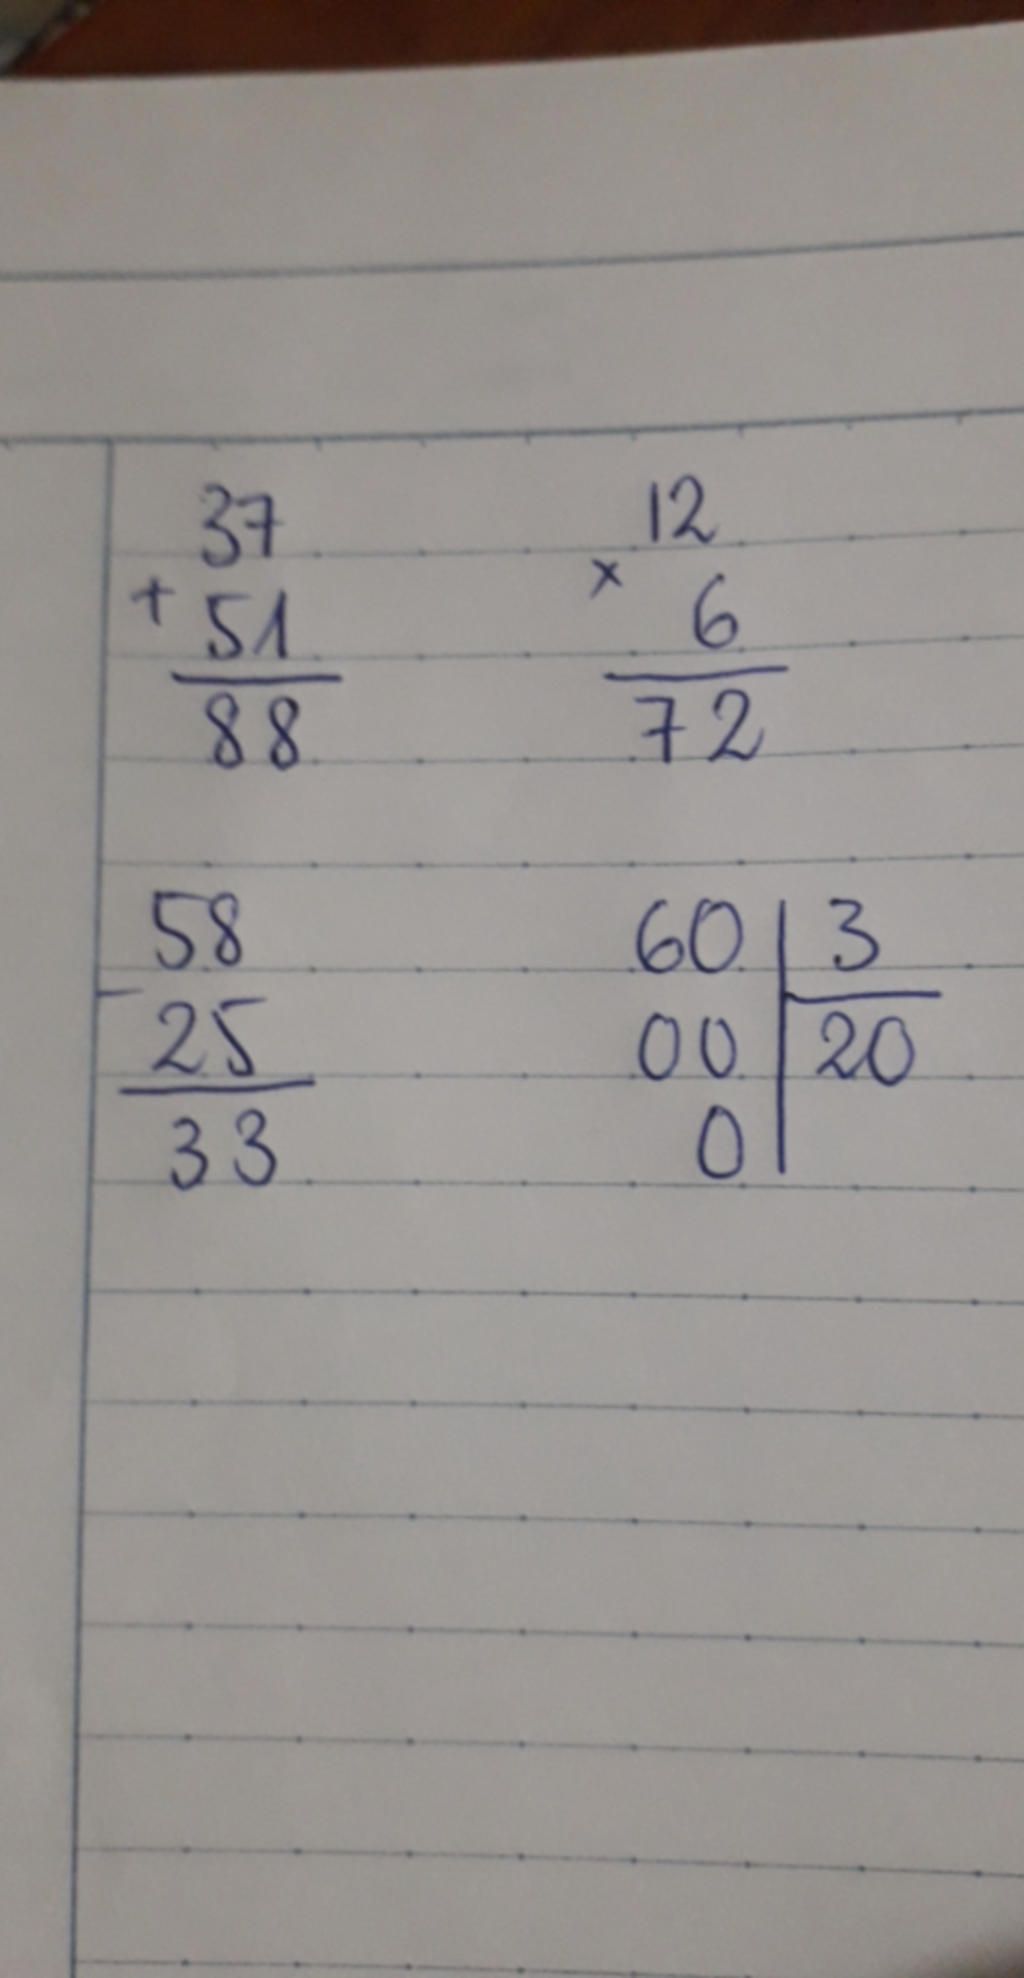 37
+
51
88
12
×
6
72
58
-
25
33
60 | 3
00 | 20
0